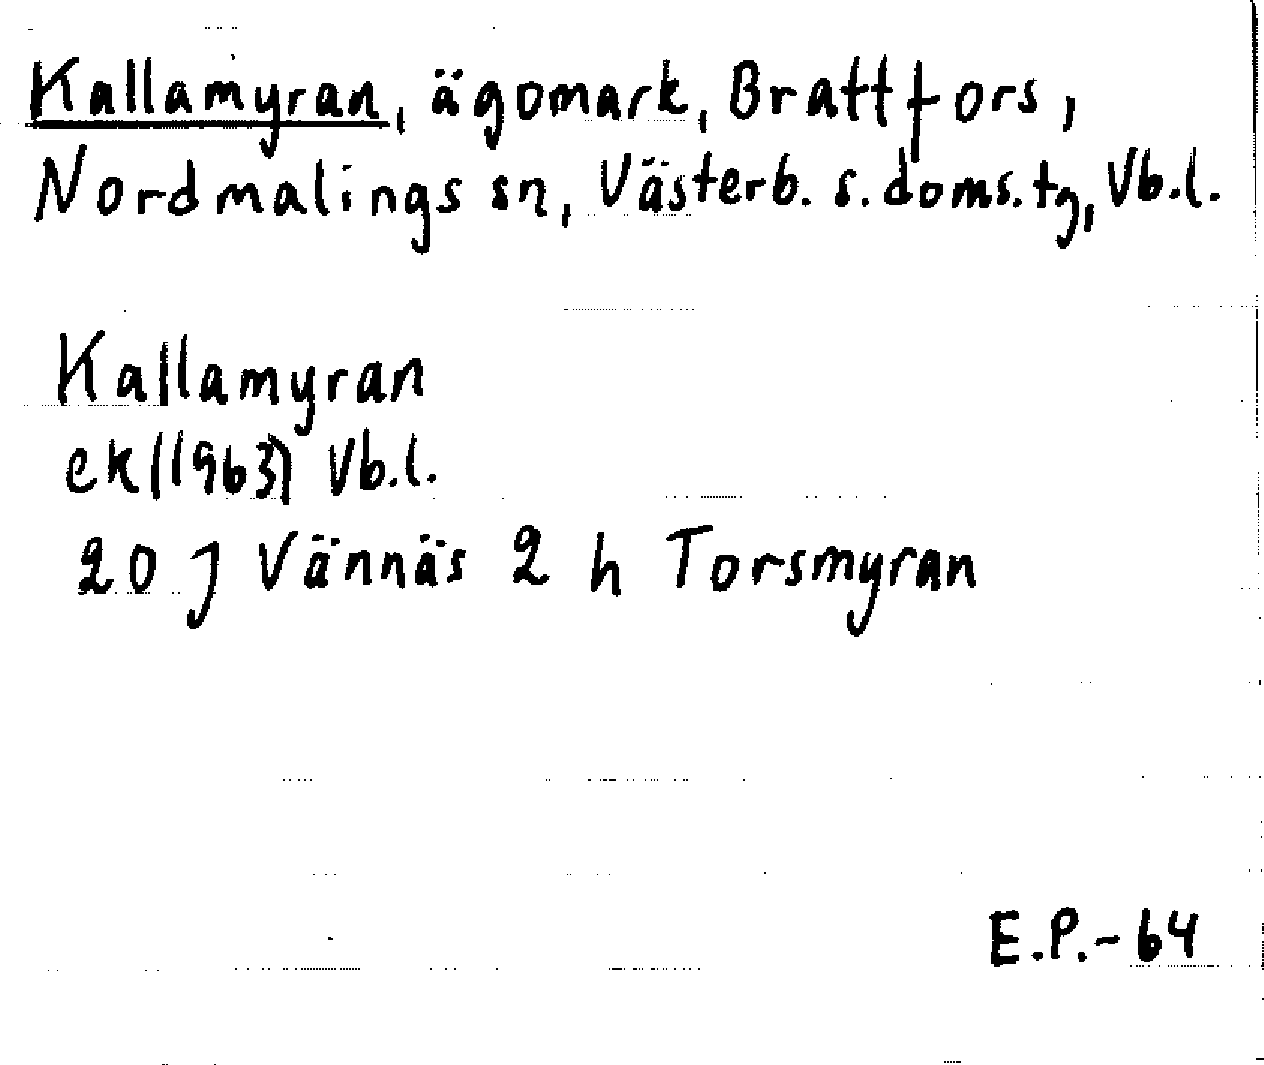 Kallamyran, ägomark, Brattfors,
Nordmalings sn, Västerb. s. doms. tg, Vb.l.
Kallamyran
ek (1963) Vb.l.
20 J Vännäs 2 h Torsmyran
E.P.-64